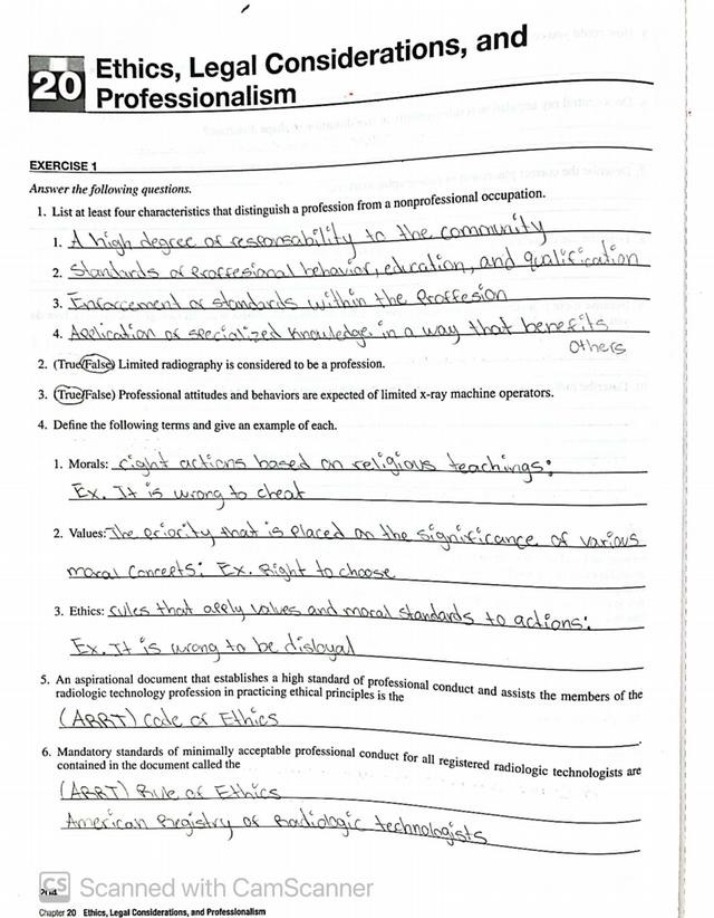 20
Ethics, Legal Considerations, and
Professionalism
EXERCISE 1
Answer the following questions.
1. List at least four characteristics that distinguish a profession from a nonprofessional occupation.
1. A high degree of responsability to the community
2. Standards of proffesional behavior, education, and qualification
3. Enforcement of standards within the proffesion
4. Application of specialized knowledge in a way that benefits
others
2. (True/False) Limited radiography is considered to be a profession.
3. (True/False) Professional attitudes and behaviors are expected of limited x-ray machine operators.
4. Define the following terms and give an example of each.
1. Morals: right actions based on religious teachings:
Ex. It is wrong to cheat
2. Values: The priority that is placed on the significance of various
moral concepts: Ex. Right to choose
3. Ethics: rules that apply values and moral standards to actions:
Ex. It is wrong to be disloyal
5. An aspirational document that establishes a high standard of professional conduct and assists the members of the
radiologic technology profession in practicing ethical principles is the
(ARRT) Code of Ethics
6. Mandatory standards of minimally acceptable professional conduct for all registered radiologic technologists are
contained in the document called the
(ARRT) Rule of Ethics
American Registry of Radiologic technologists
CS Scanned with CamScanner
Chapter 20 Ethics, Legal Considerations, and Professionalism